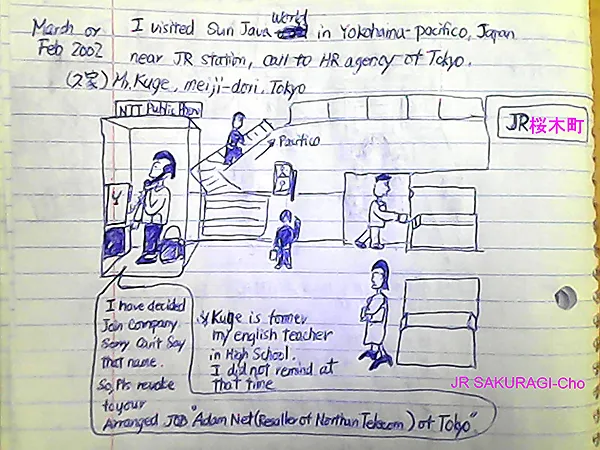 March or
Feb 2002
I visited Sun Java World in Yokohama-pacifico, Japan
near JR station, call to HR agency of Tokyo.
(久家) Mr. Kuge, meiji-dori, Tokyo
NTT Public Phone
Pacifico
JR桜木町
I have decided
Join Company
Sorry Can't Say
that name.
So, Pls revoke
to your
Arranged JOB "Adam Net (Reseller of Northan Telecom) of Tokyo".
Kuge is former
my english teacher
in High School.
I did not remind at
that time
JR SAKURAGI-Cho